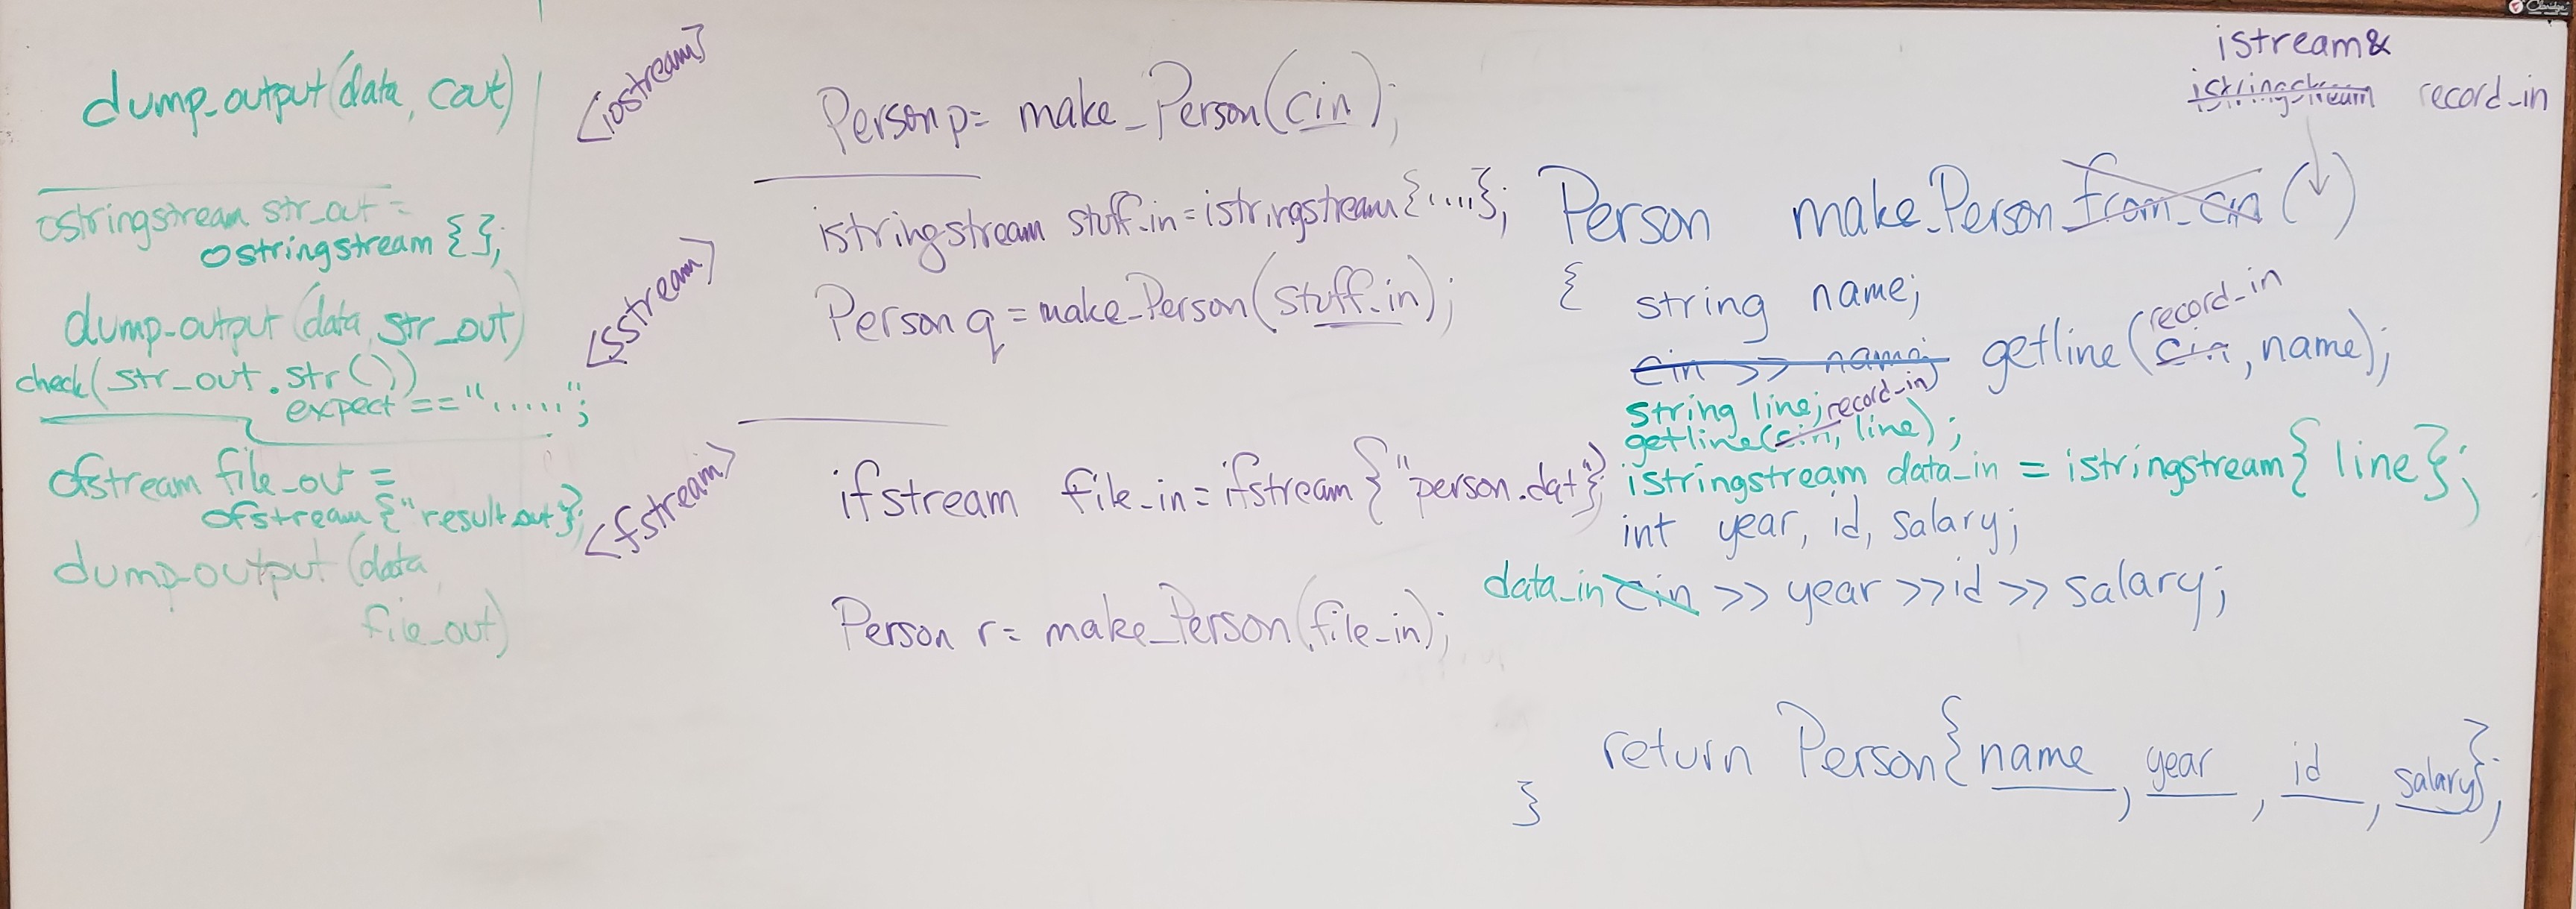 dump_output(data, cout)
ostringstream str_out =
ostringstream {};
dump_output (data, str_out)
check(str_out.str())
expect == ".....";
ofstream file_out =
ofstream {"result.out"};
dump_output (data,
file_out)
<iostream>
<sstream>
<fstream>
Person p = make_Person(cin);
istringstream stuff_in = istringstream {....};
Person q = make_Person(stuff_in);
ifstream file_in = ifstream {"person.dat"};
Person r = make_Person(file_in);
istream&
istringstream record_in
Person make_Person from_cin ( )
{ string name;
record_in
cin >> name; getline(cin, name);
record_in
string line;
getline(cin, line);
istringstream data_in = istringstream{ line };
int year, id, salary;
data_in cin >> year >> id >> salary;
return Person{ name, year, id, salary};
}
Claridge